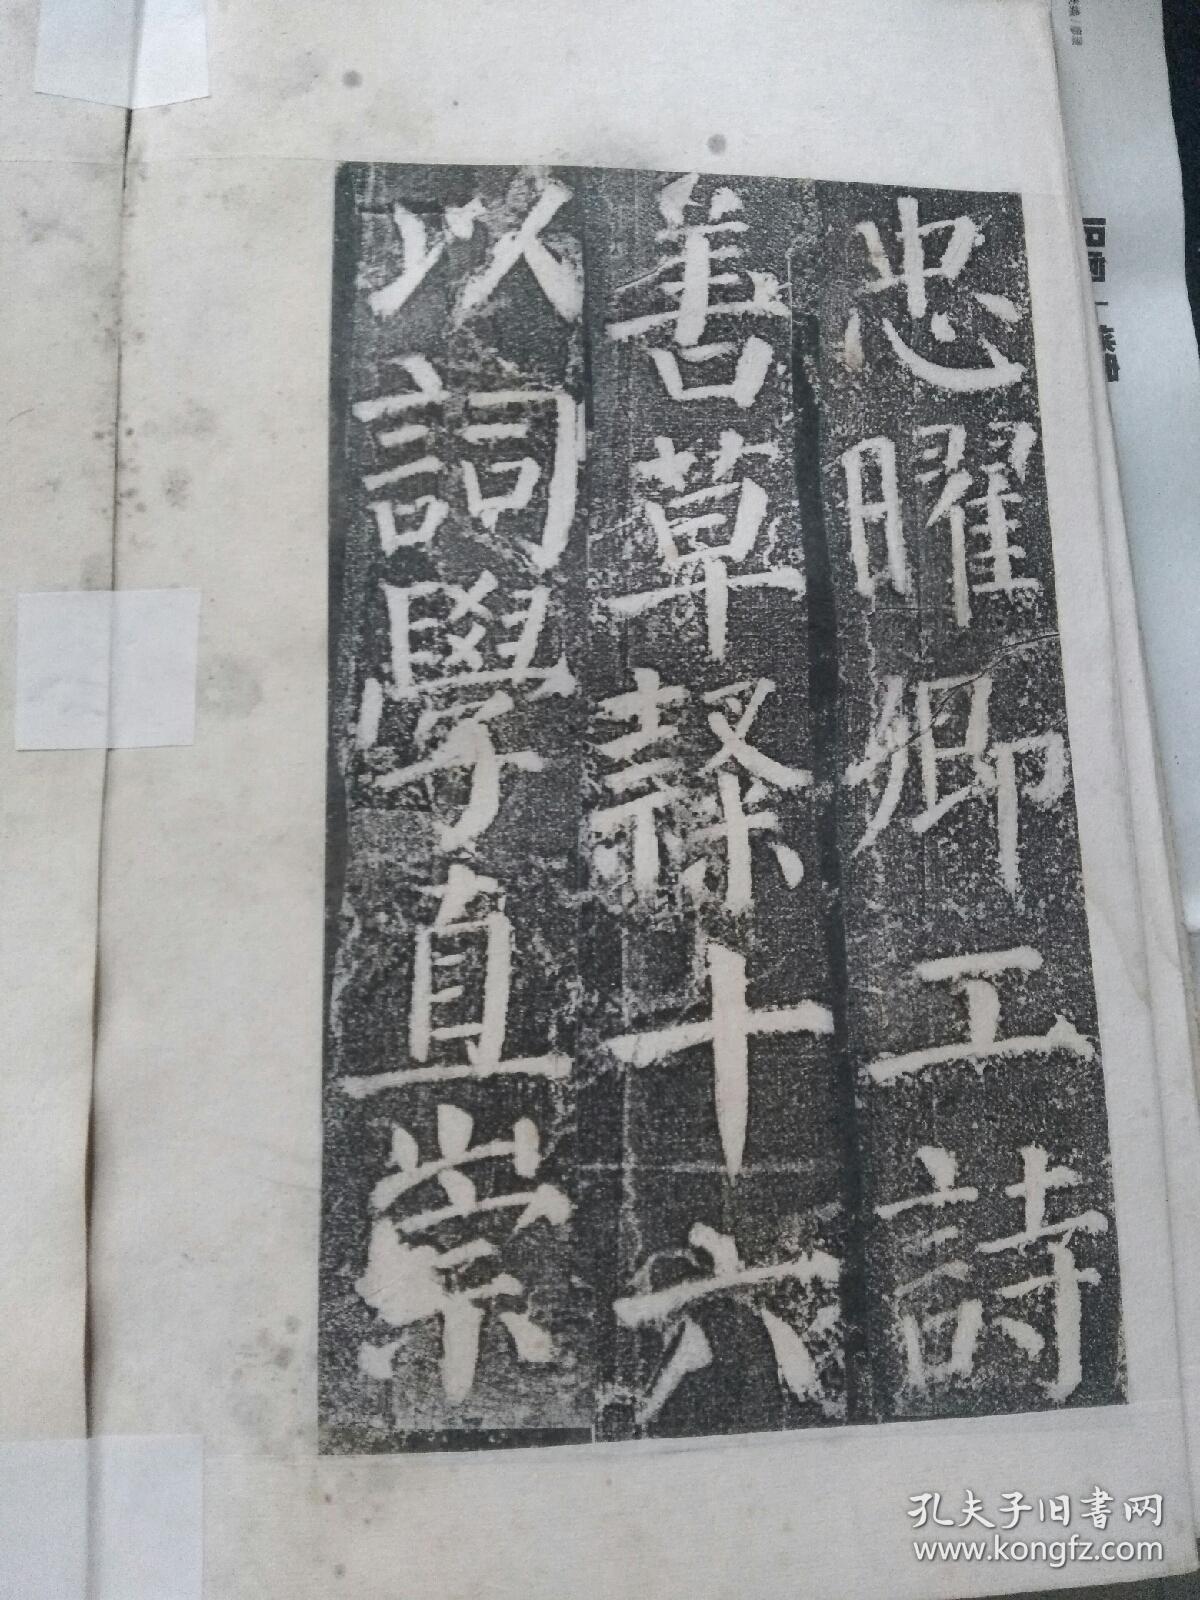 忠曜卿工詩
善草隸十六
以詞學直崇
孔夫子旧書网
www.kongfz.com